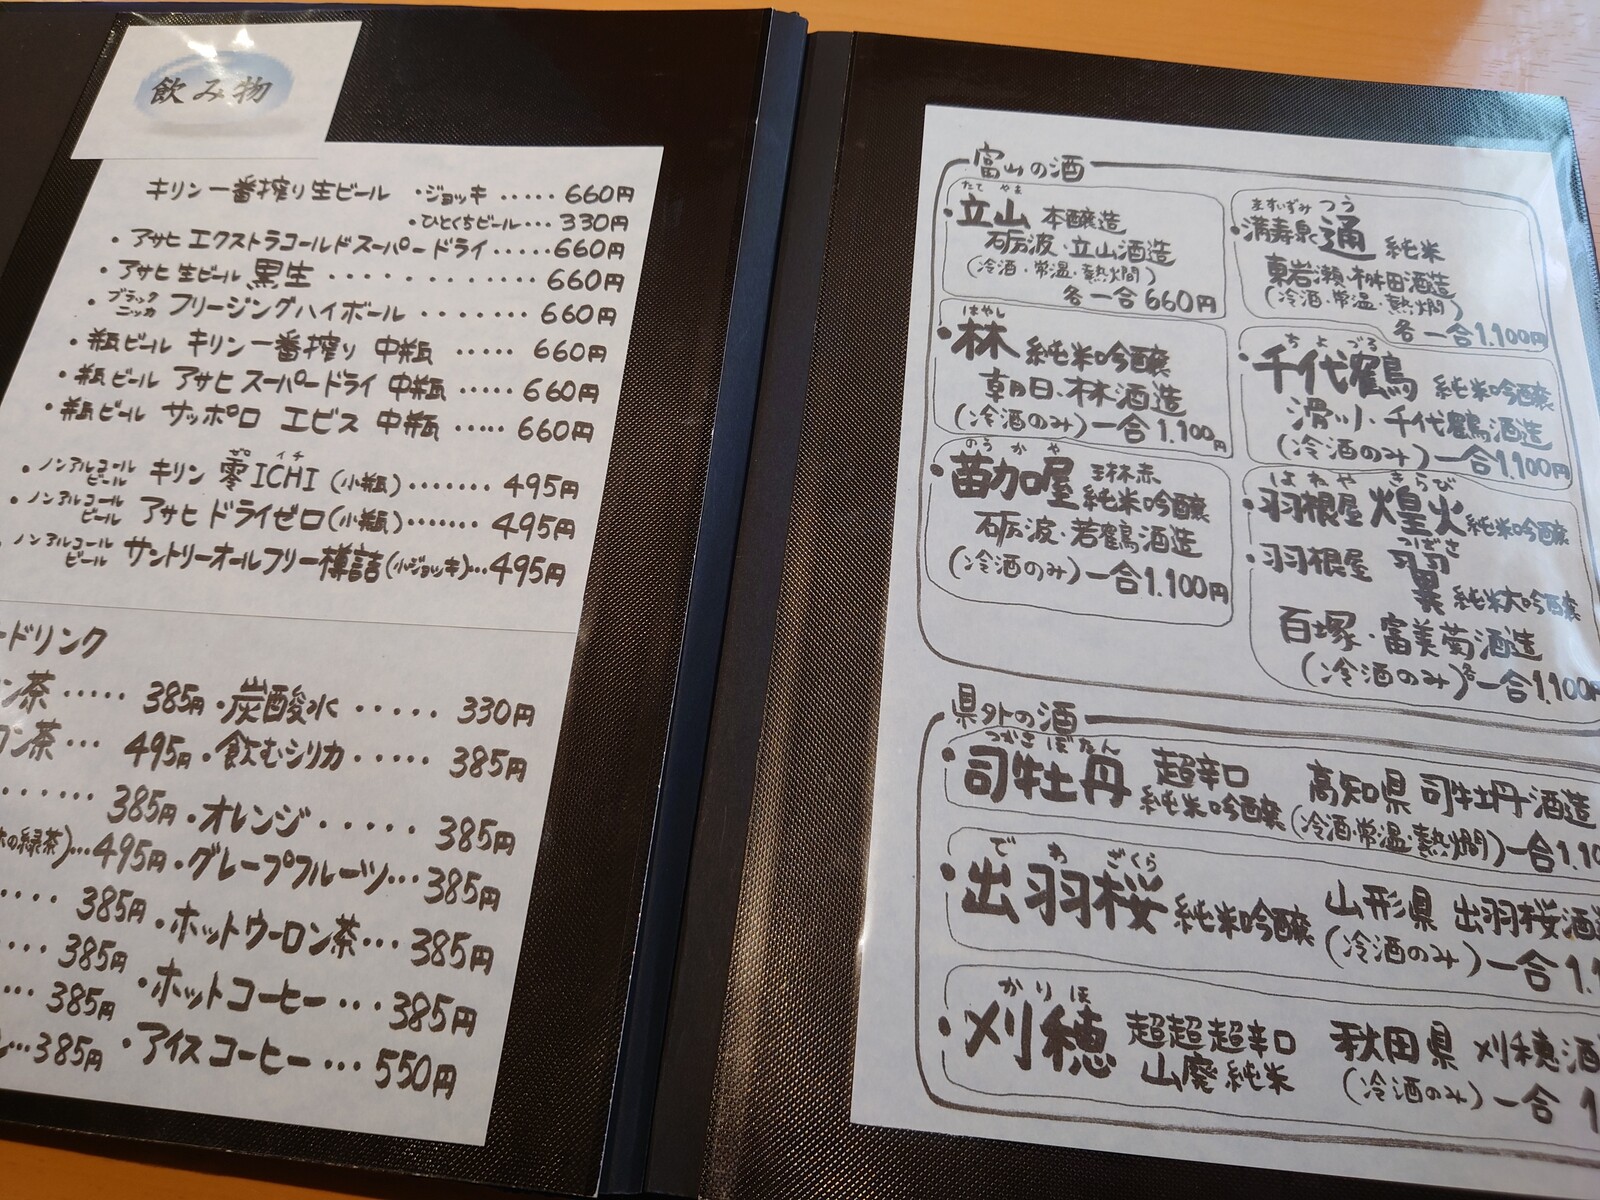 飲み物
キリン一番搾り生ビール ・ジョッキ ····· 660円
・ひとくちビール··· 330円
・アサヒ エクストラコールドスーパードライ ····· 660円
・アサヒ 生ビール 黒生 ·········· 660円
・ブラックニッカ フリージングハイボール ······· 660円
・瓶ビール キリン一番搾り 中瓶 ····· 660円
・瓶ビール アサヒ スーパードライ 中瓶 ····· 660円
・瓶ビール サッポロ エビス 中瓶 ····· 660円
ゼロ イチ
・ノンアルコールビール キリン 零ICHI (小瓶) ······· 495円
・ノンアルコールビール アサヒ ドライゼロ(小瓶) ······· 495円
ノンアルコールビール サントリーオールフリー樽詰(小ジョッキ)···495円
ードリンク
ン茶 ····· 385円 ・炭酸水 ····· 330円
ロン茶 ··· 495円 ・飲むシリカ ····· 385円
······· 385円 ・オレンジ ····· 385円
の緑茶)···495円 ・グレープフルーツ··· 385円
···· 385円 ・ホットウーロン茶··· 385円
···· 385円 ・ホットコーヒー ··· 385円
··· 385円 ・アイスコーヒー ··· 550円
···385円
富山の酒
たて やま
・立山 本醸造
砺波・立山酒造
(冷酒・常温・熱燗)
各一合660円
はやし
・林 純米吟醸
朝日・林酒造
(冷酒のみ)一合1.100円
のうかや
・苗加屋 玲林赤
純米吟醸
砺波・若鶴酒造
(冷酒のみ)一合1.100円
ますいずみ つう
・満寿泉 通 純米
東岩瀬・桝田酒造
(冷酒・常温・熱燗)
各一合1.100円
ちよづる
・千代鶴 純米吟醸
滑川・千代鶴酒造
(冷酒のみ)一合1.100円
はねや きらび
・羽根屋 煌火 純米吟醸
つばさ
・羽根屋 翼 純米大吟醸
百塚・富美菊酒造
(冷酒のみ)各一合1.100円
県外の酒
つかさ ぼたん
・司牡丹 超辛口 純米吟醸 高知県 司牡丹酒造
(冷酒・常温・熱燗)一合1.10
でわ ざくら
・出羽桜 純米吟醸 山形県 出羽桜酒造
(冷酒のみ)一合1.1
かりほ
・刈穂 超超超辛口 山廃純米 秋田県 刈穂酒
(冷酒のみ)一合 1